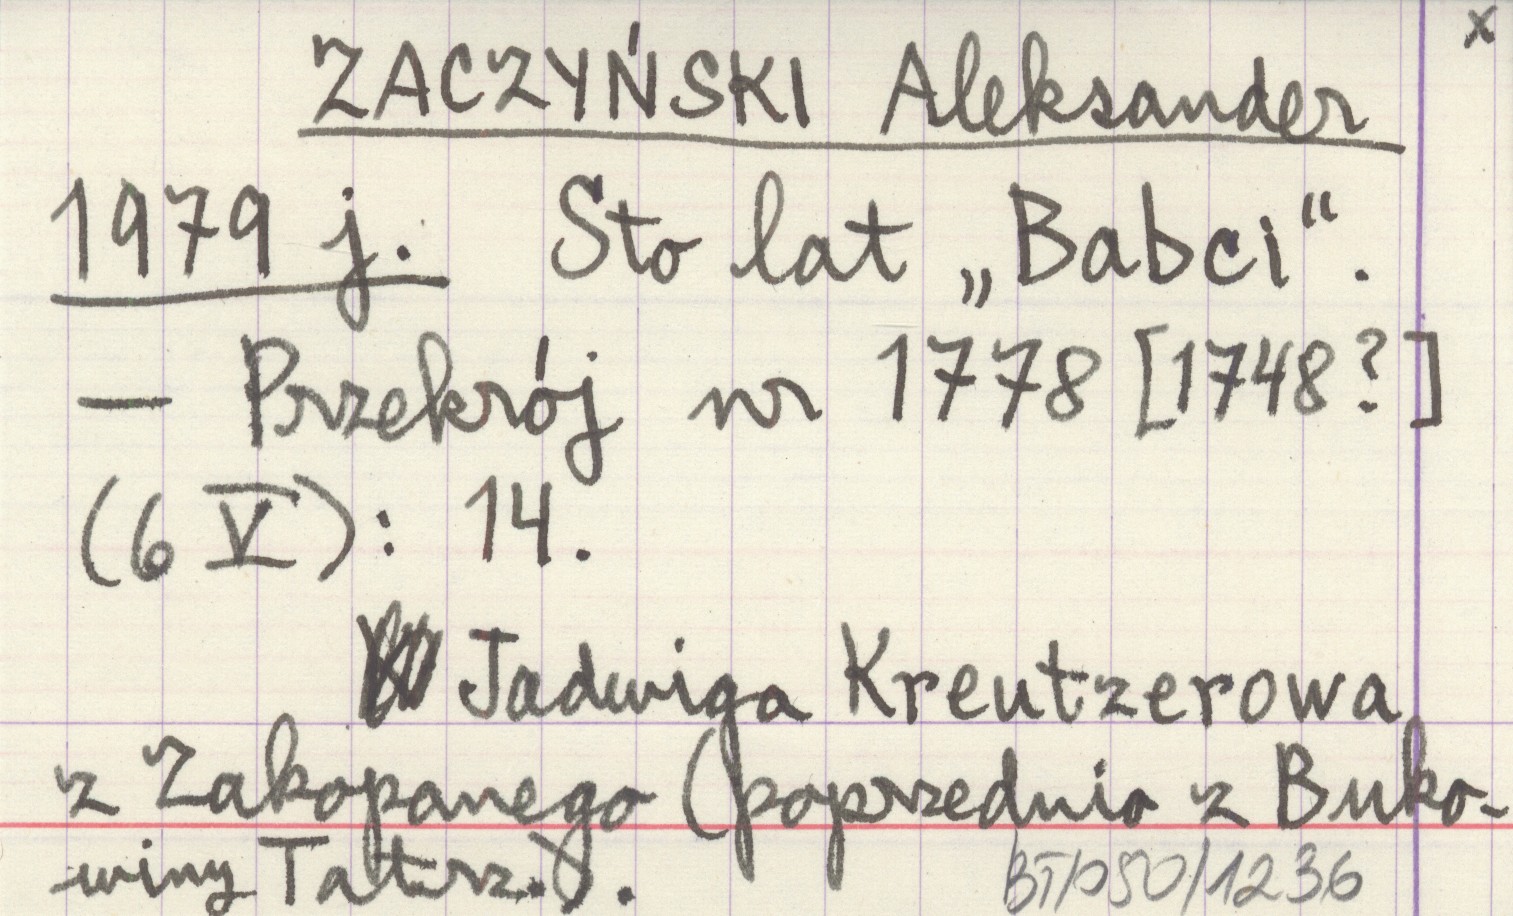 x
ZACZYŃSKI Aleksander
1979 j. Sto lat „Babci“.
— Przekrój nr 1778 [1748?]
(6 V): 14.
Jadwiga Kreutzerowa
z Zakopanego (poprzednio z Buko-
winy Tatrz.).
BT/050/1236